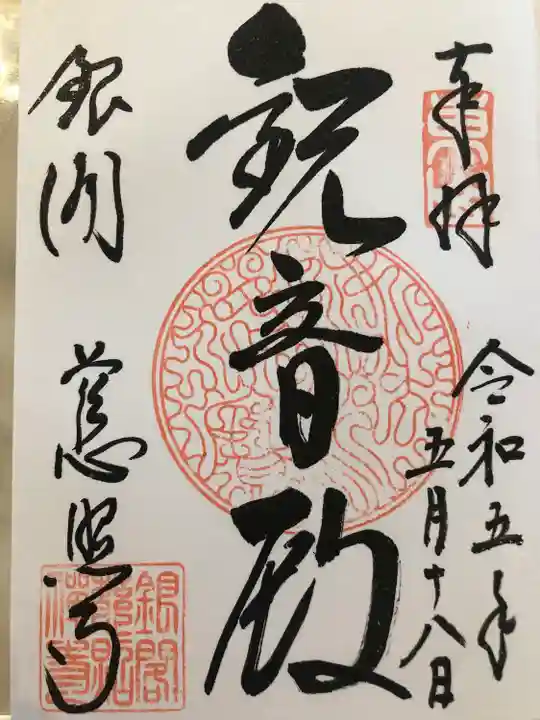 奉拝
令和五年
五月十八日
観音殿
銀閣
慈照寺
銀閣慈照禅寺